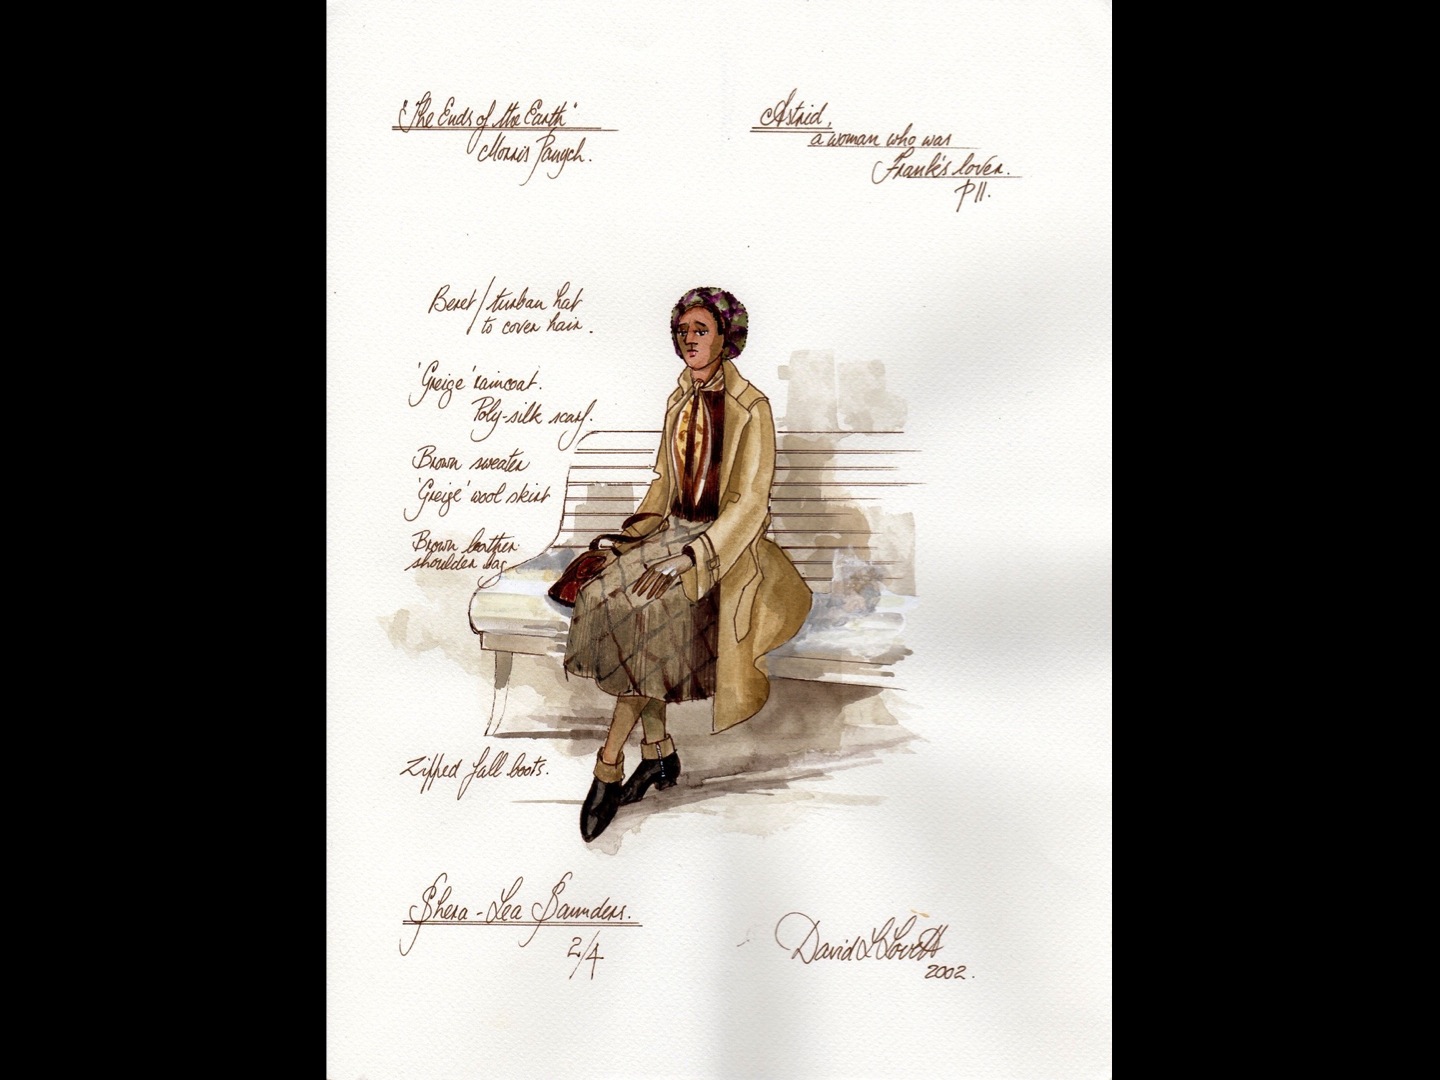 "The Ends of the Earth"
Morris Panych.
Astrid,
a woman who was
Frank's lover.
P11.
Beret/turban hat
to cover hair.
'Greige' raincoat.
Poly-silk scarf.
Brown sweater
'Greige' wool skirt
Brown leather
shoulder bag
Zipped fall boots.
Shera-Lea Saunders.
2/4
David L Lovett
2002.